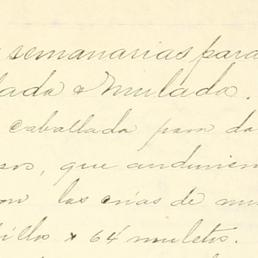 semanarias para
lada & mulada.
caballada para da
sos, que anduvie
on las crias de mu
illo & 64 muletos.